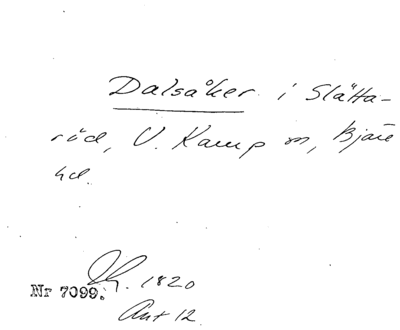 Dalsåker i Slätta-
röd, V. Karup sn, Bjäre
hd.
1820
Nr 7099.
Ant 12